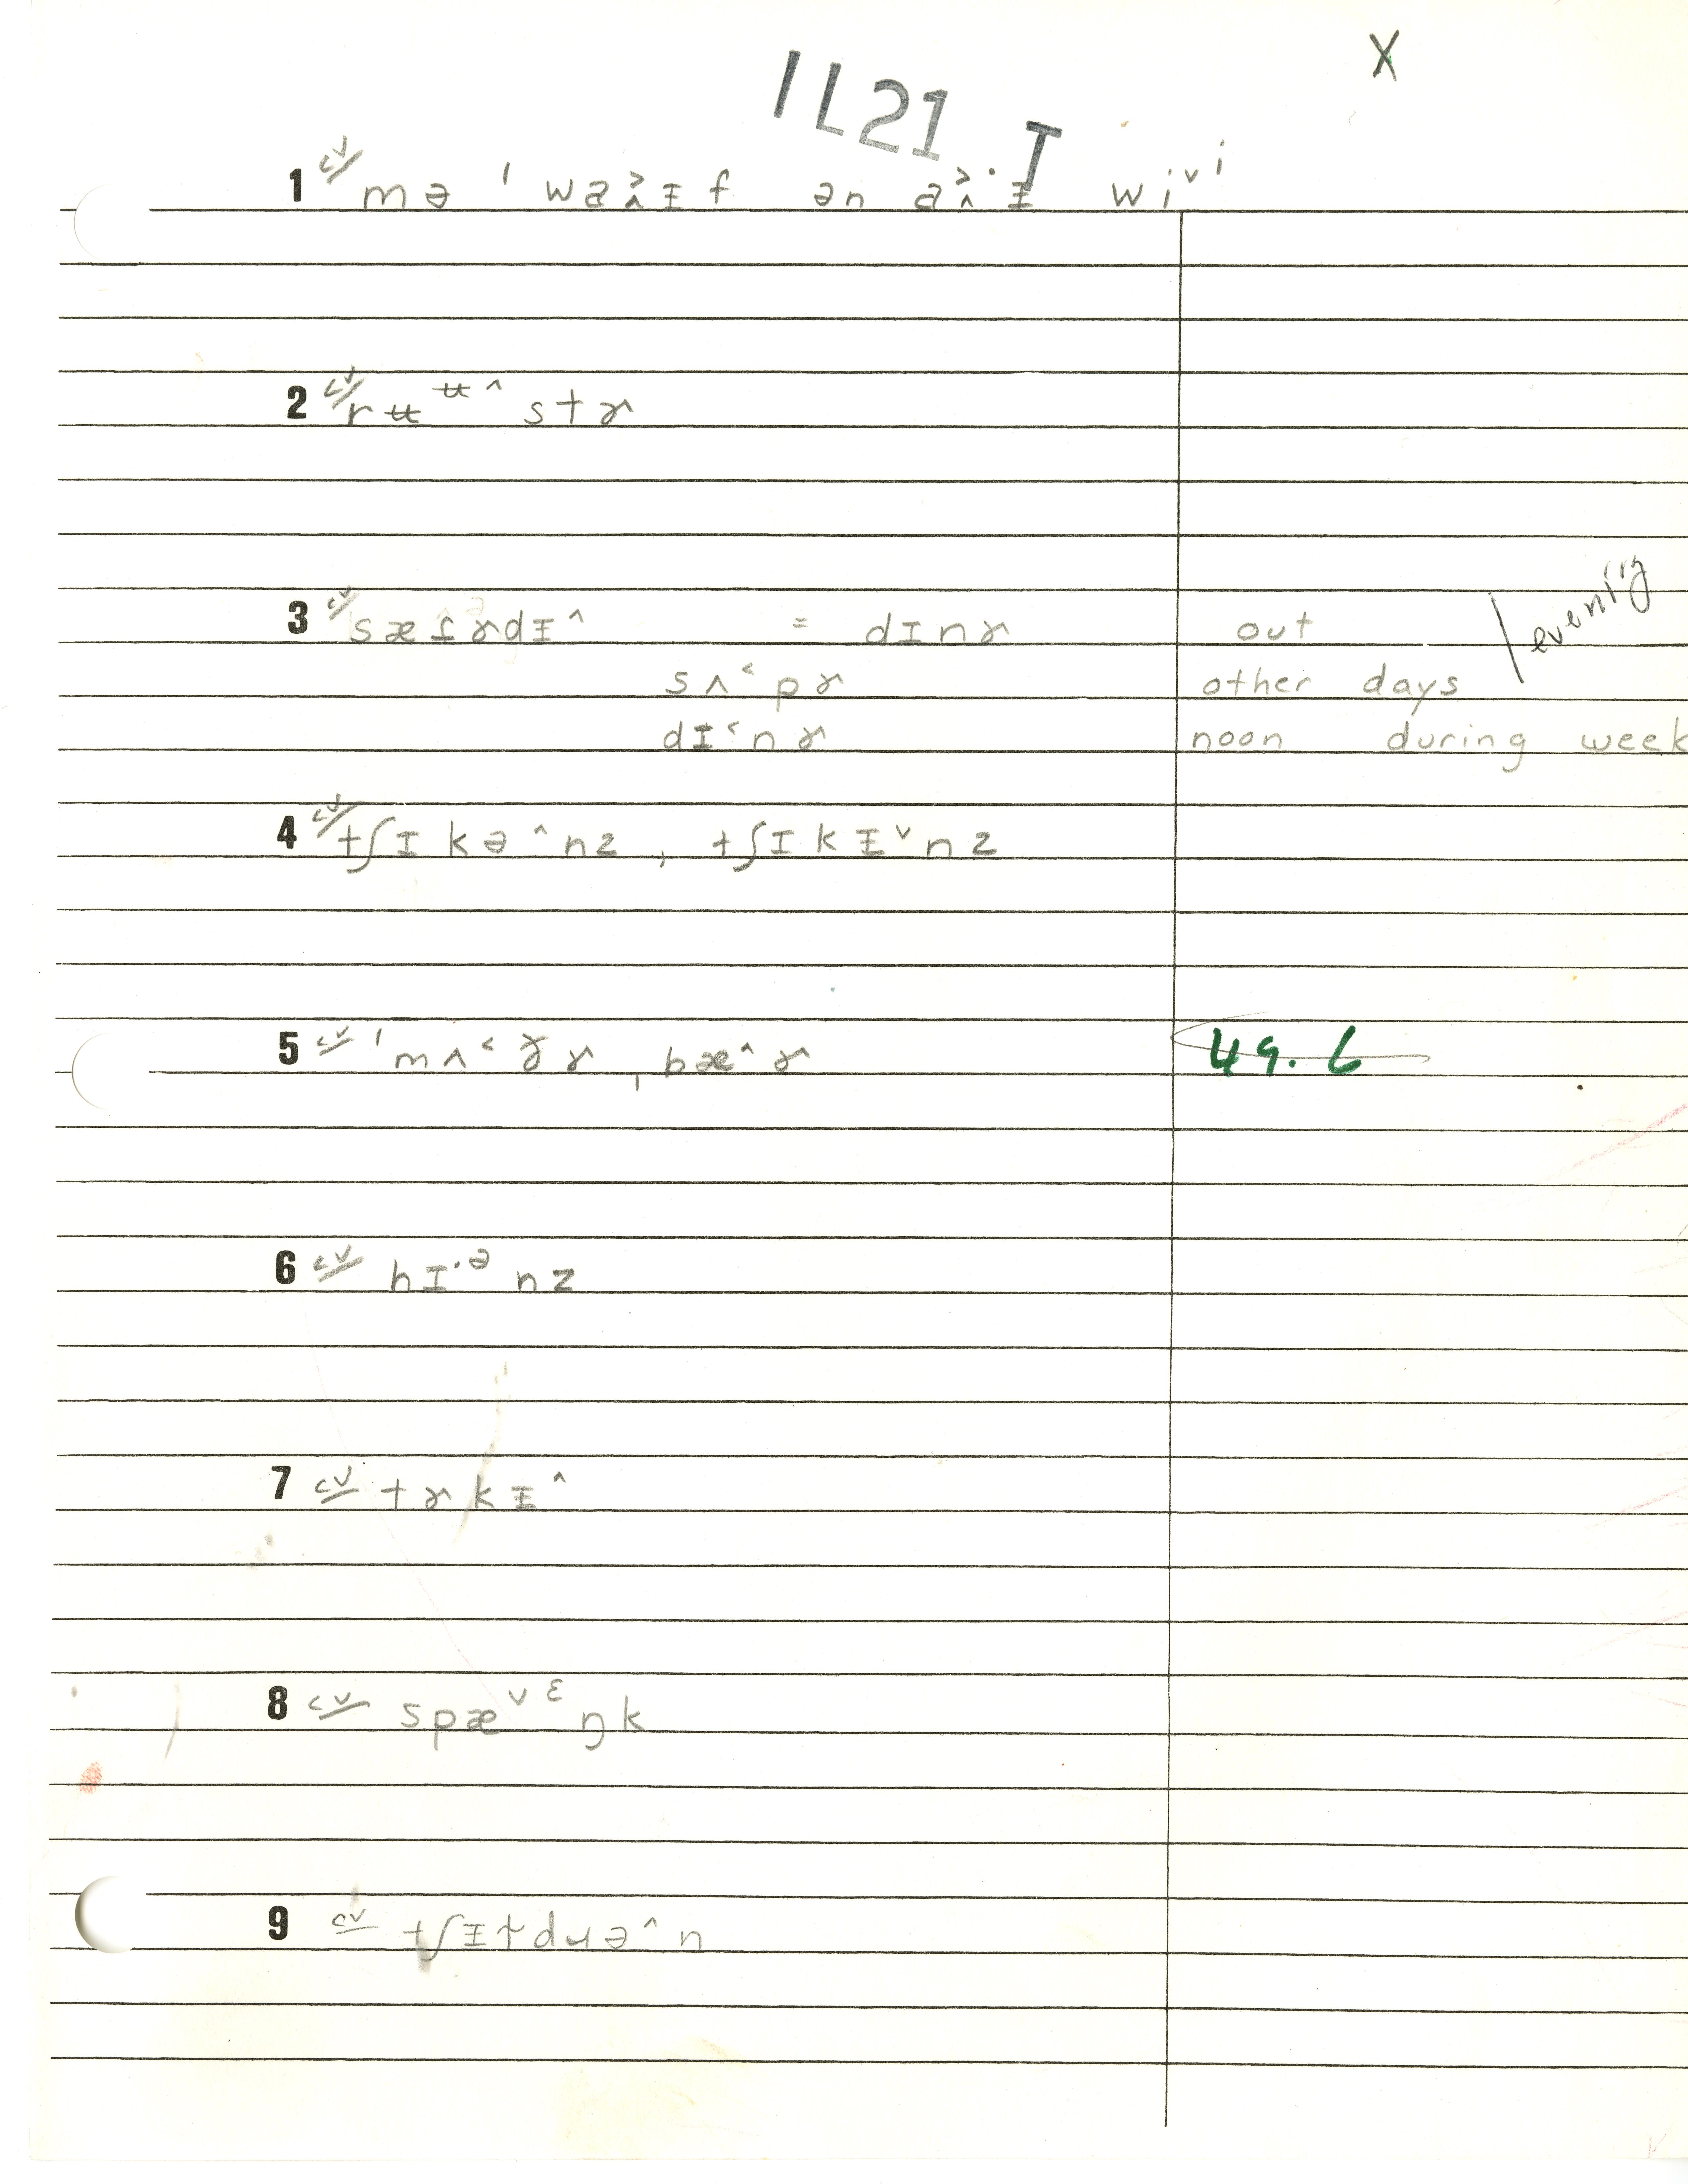 X
IL21.I
1 cv mə ˈwaɪf ən aɪ wiᵛⁱ
2 cv rʉᵾ^stɚ
3 cv sæɾɚdɪ^ = dɪnɚ out evening
sʌ˂pɚ other days
dɪ˂nɚ noon during week
4 cv tʃɪkə^nz, tʃɪkɪˇnz
5 cv ˈmʌ˂ðɚ, bæ^ɚ 49.6
6 cv hɪ·ᵊnz
7 cv tɚkɪ^
8 cv spæˇᵋŋk
9 cv tʃɪɫdɹə^n